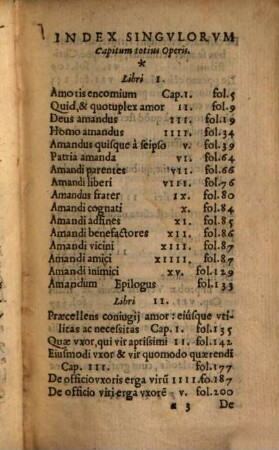 INDEX SINGVLORVM
Capitum totius Operis.
*
Libri I.
Amoris encomium Cap.I. fol.5
Quid,& quotuplex amor II. fol.9
Deus amandus III. fol.19
Homo amandus IIII. fol.34
Amandus quisque à seipso V. fol.39
Patria amanda VI. fol.64
Amandi parentes VII. fol.66
Amandi liberi VIII. fol.76
Amandus frater IX. fol.80
Amandi cognati X. fol.84
Amandi adfines XI. fol.85
Amandi benefactores XII. fol.86
Amandi vicini XIII. fol.87
Amandi amici XIIII. fol.87
Amandi inimici XV. fol.129
Amandum Epilogus fol.133
Libri II.
Præcellens coniugij amor: eiúsque vti-
litas ac necessitas Cap. I. fol.135
Quæ vxor, qui vir aptissimi II. fol.142
Eiusmodi vxor & vir quomodo quærendi
Cap. III. fol.177
De officio vxoris erga virū IIII. fo.187
De officio viri erga vxorē v. fol.200
3 De